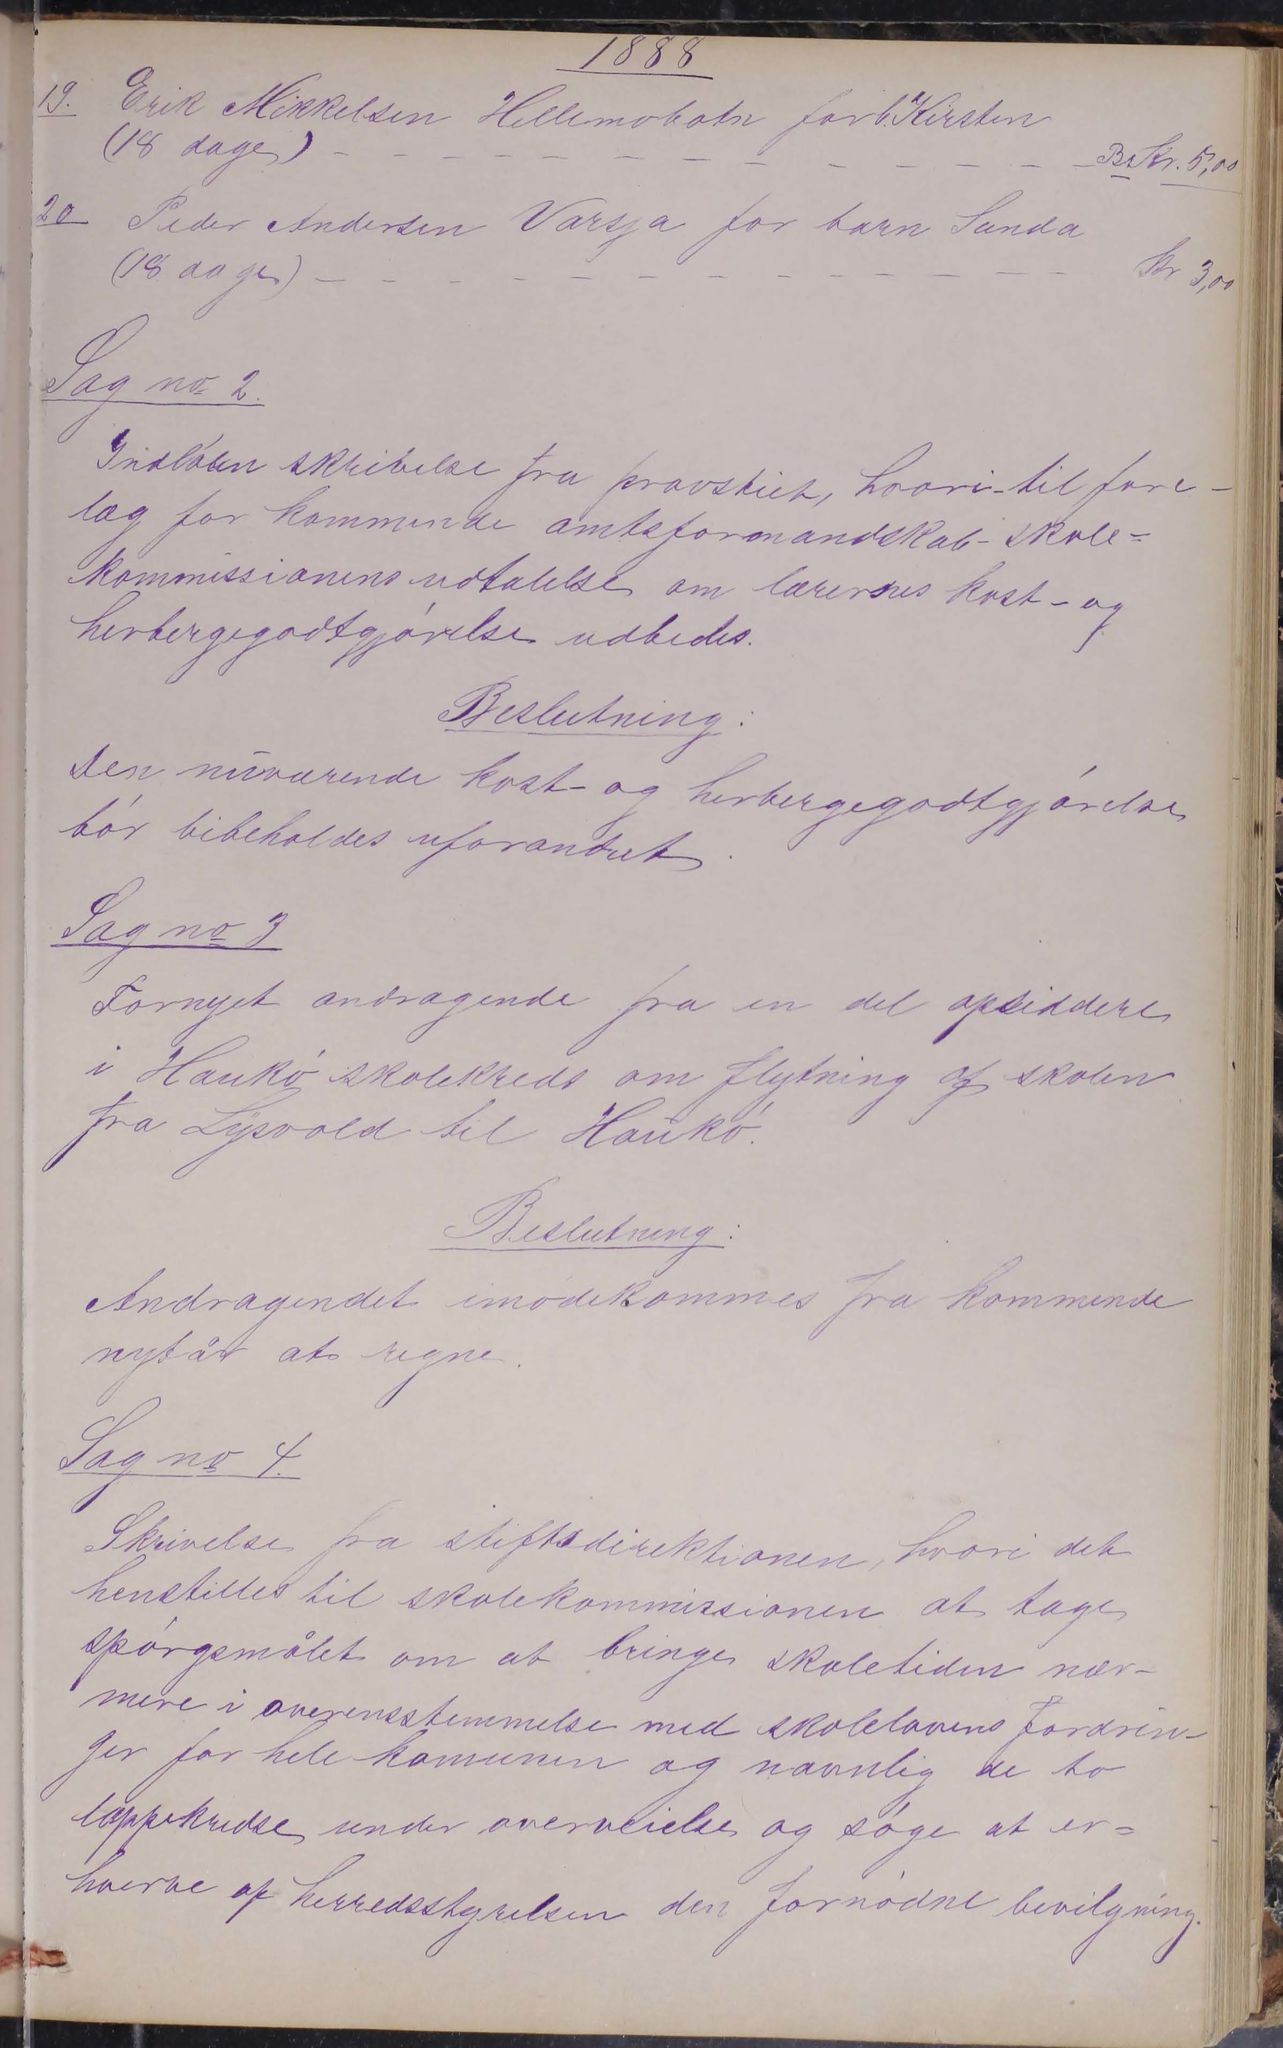 1888
19. Erik Mikkelsen Hellemobotn for b. Kirsten
(18 dage) - - - - - - - - - - - - - Kr. 5,00
20 Peder Andersen Varsja for barn Sunda
(18 dage) - - - - - - - - - - - - - kr 3,00
Sag no 2.
Indløben skribelse fra provstiet, hvori til fore-
læg for kommende amtsformandskab - skole-
kommissionens udtalelse om lærernes kost- og
herbergegodtgjørelse udbedes.
Beslutning:
Den nuværende kost- og herbergegodtgjørelse
bør bibeholdes uforandret.
Sag no 3
Fornyet andragende fra en del opsiddere
i Haukø skolekreds om flytning af skolen
fra Lysvold til Haukø.
Beslutning:
Andragendet imødekommes fra kommende
nytår at regne.
Sag no 4.
Skrivelse fra stiftsdirektionen, hvori det
henstilles til skolekommissionen at tage
spørgsmålet om at bringe skoletiden nær-
mere i overensstemmelse med skolelovens fordrin-
ger for hele komunen og navnlig de to
lappekredse under overveielse og søge at er-
hverve af herredsstyrelsen den fornødne bevilgning.